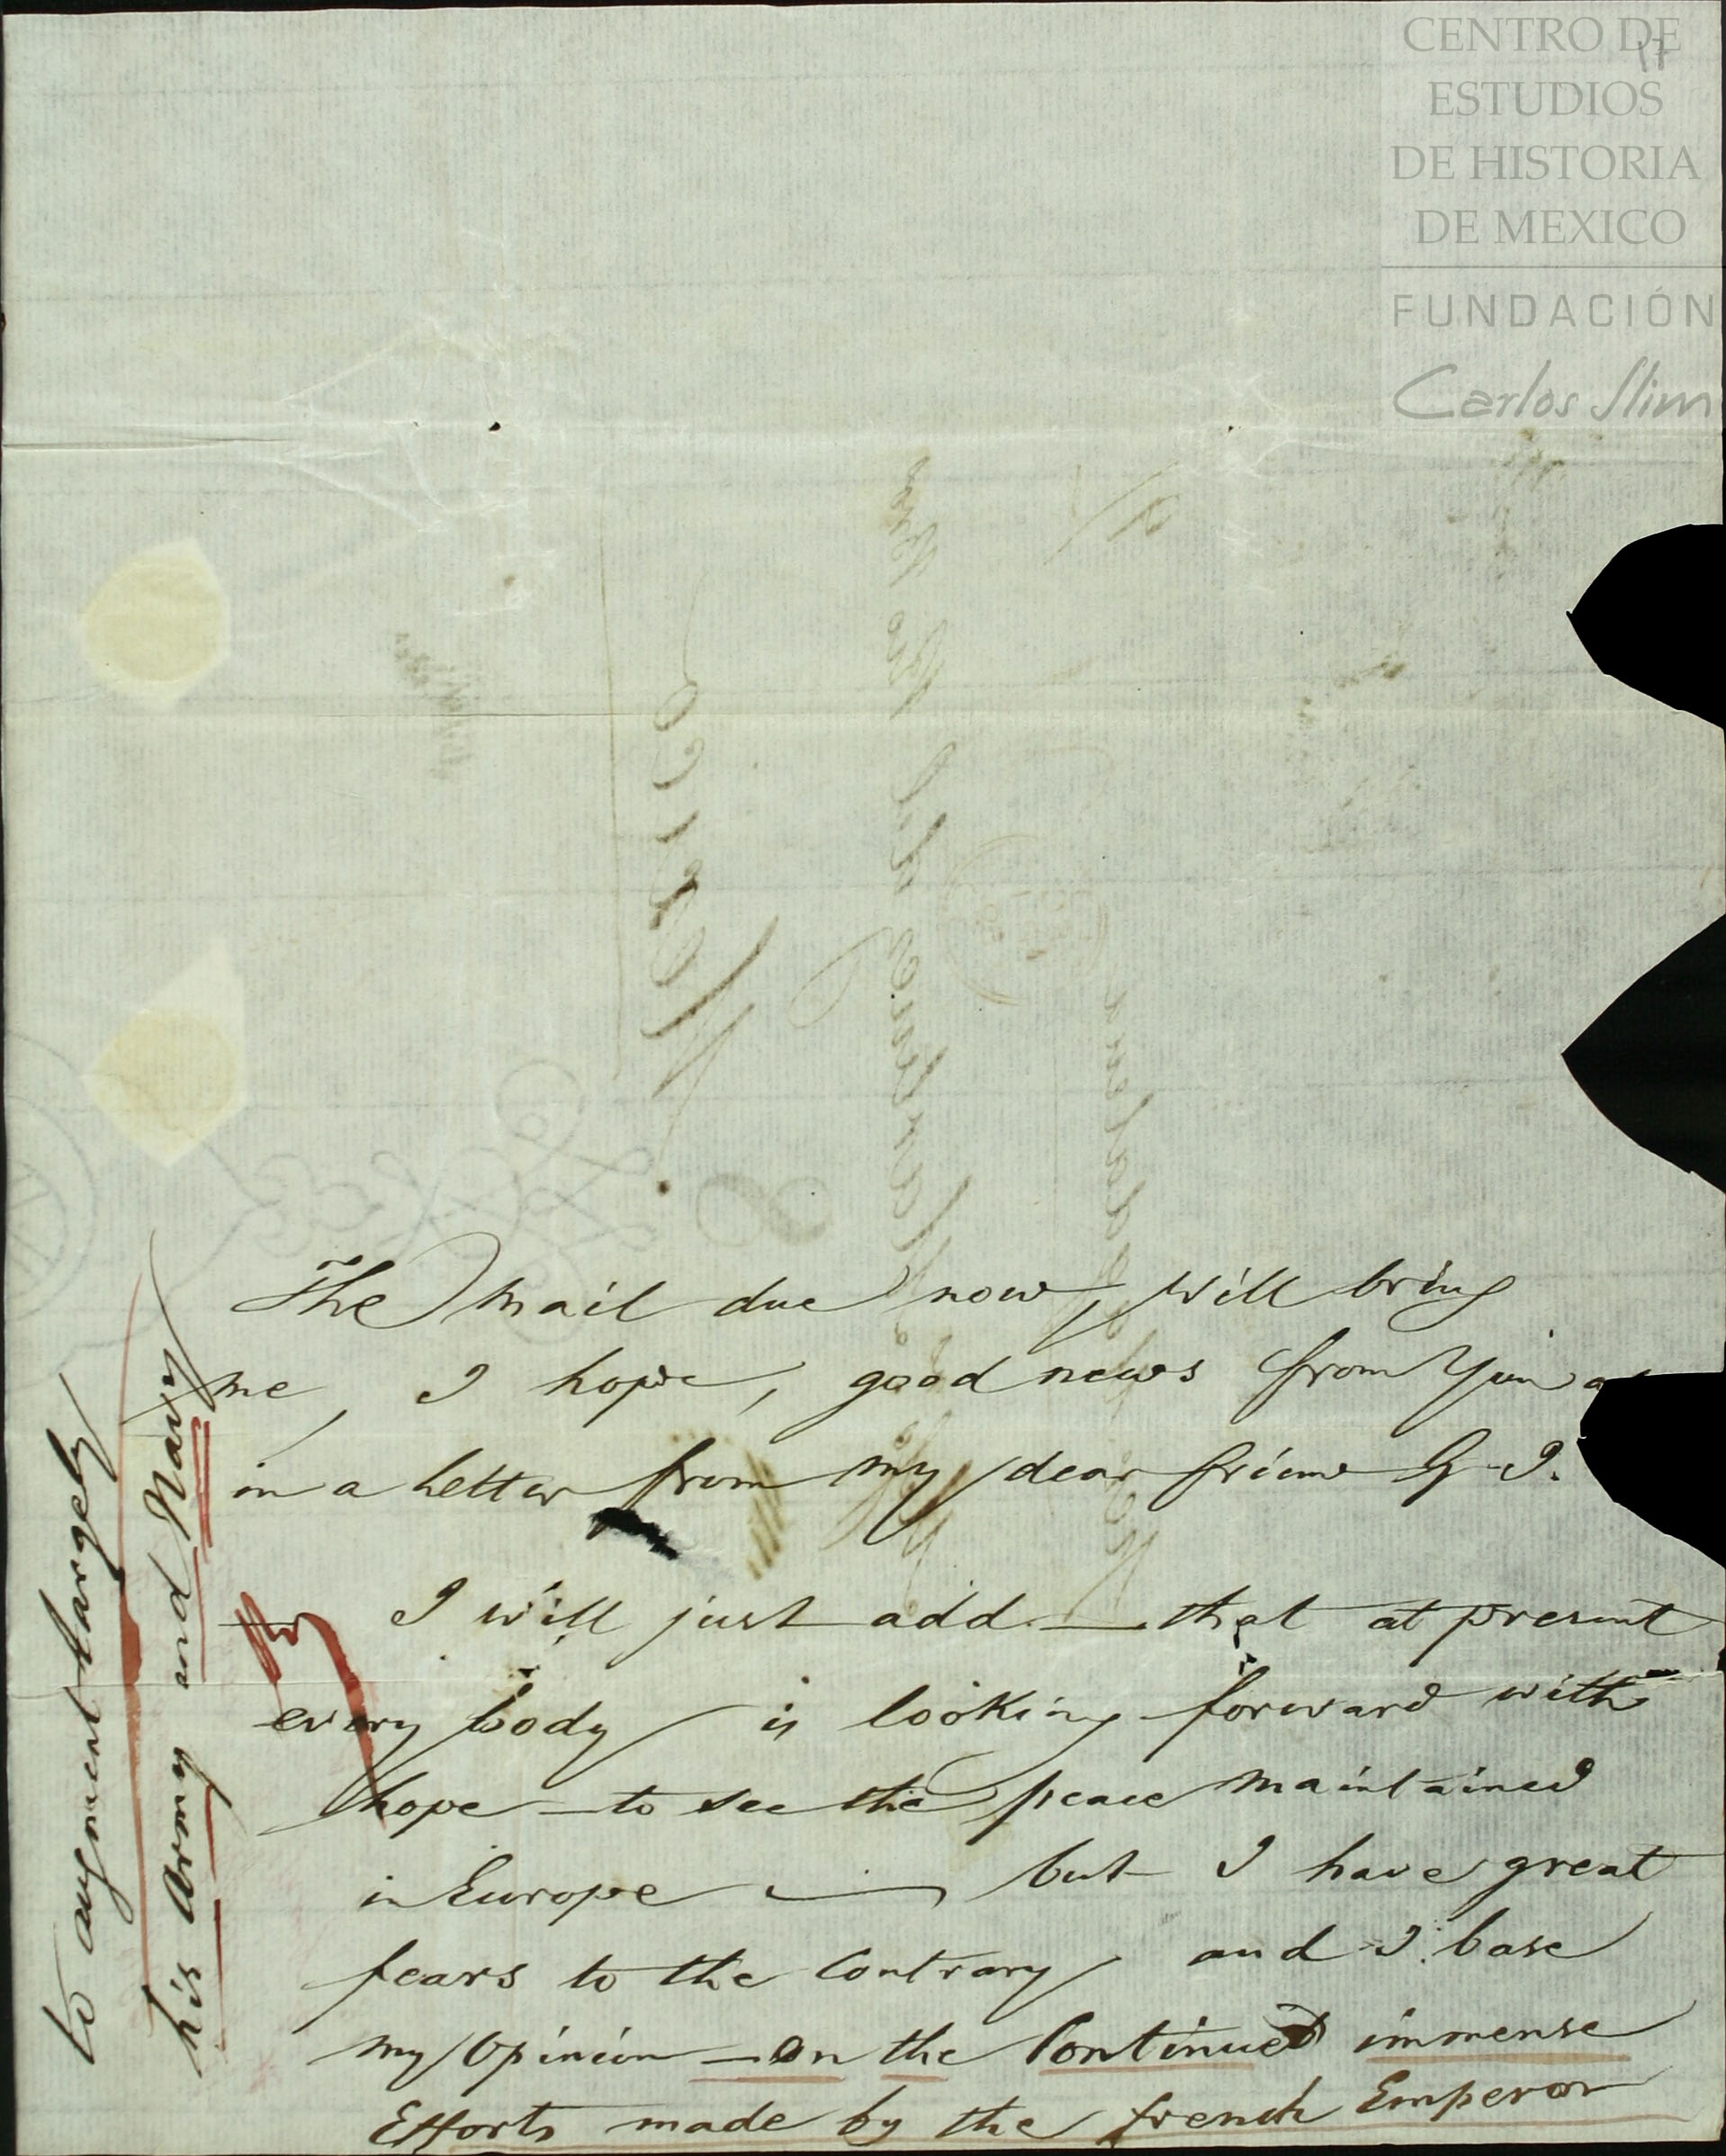 CENTRO DE
ESTUDIOS
DE HISTORIA
DE MEXICO
FUNDACIÓN
Carlos Slim
17
The mail due now, will bring
me, I hope, good news from You
in a letter from my dear friend G. I.
I will just add — that at present
every body is looking forward with
hope — to see the peace maintained
in Europe — but I have great
fears to the Contrary and I base
my Opinion — on the Continued immense
Efforts made by the french Emperor
to augment largely
his Army and Navy